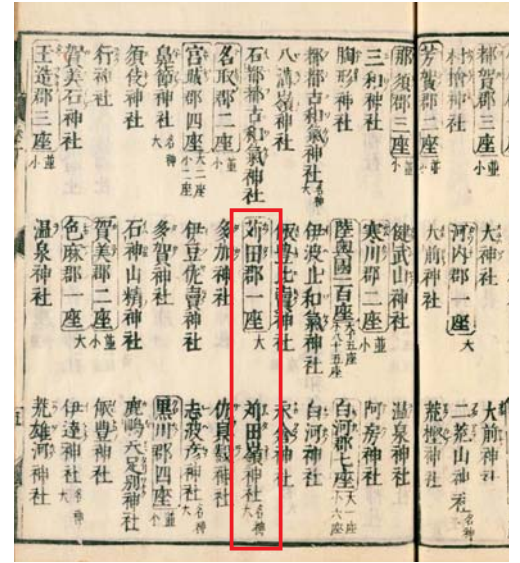 都賀郡三座 並小 大神社 大前神社
村檜神社 河内郡一座 大 二荒山神社 名神
芳賀郡二座 並小 大前神社 荒樫神社
那須郡三座 並小 健武山神社 温泉神社
三和神社 寒川郡二座 並小 阿房神社
胸形神社 陸奥國一百座 大十五座 小八十五座 白河郡七座 大一座 小六座
都都古和氣神社 名神大 伊波止和氣神社 白河神社
八溝嶺神社 飯豊比賣神社 永倉神社
石都都古和氣神社 苅田郡一座 大 苅田嶺神社 名神大
名取郡二座 並小 多加神社 佐具叡神社
宮城郡四座 大二座 小二座 伊豆佐賣神社 志波彦神社 名神大
鼻節神社 名神大 多賀神社 黒川郡四座 並小
須伎神社 石神山精神社 鹿嶋天足別神社
行神社 賀美郡二座 並小 飯豊神社
賀美石神社 色麻郡一座 大 伊達神社 名神大
玉造郡三座 並小 温泉神社 荒雄河神社